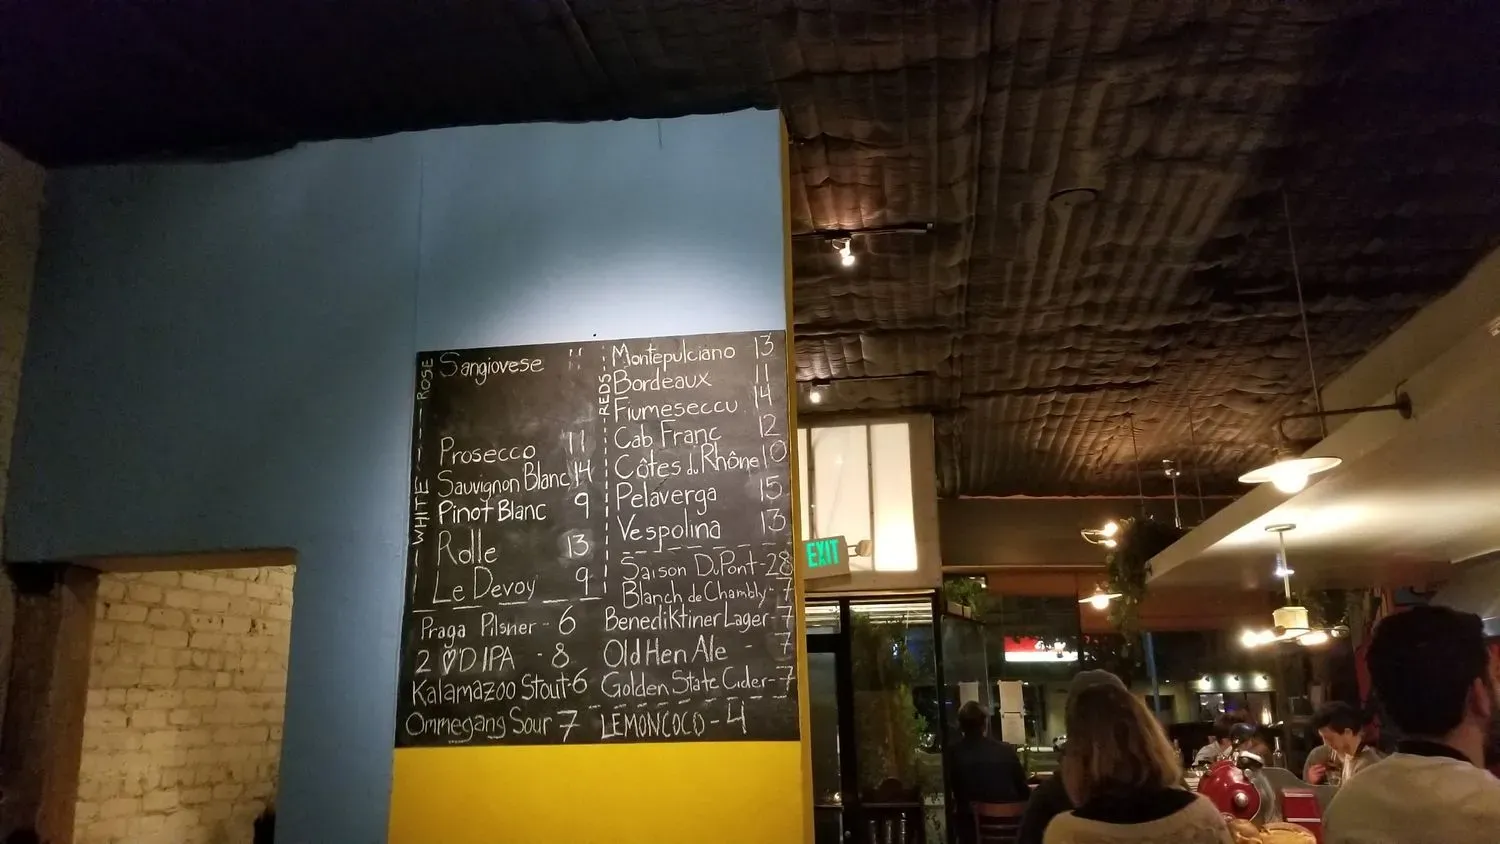 ROSE
Sangiovese 11
WHITE
Prosecco 11
Sauvignon Blanc 14
Pinot Blanc 9
Rolle 13
Le Devoy 9
REDS
Montepulciano 13
Bordeaux 11
Fiumeseccu 14
Cab Franc 12
Côtes du Rhône 10
Pelaverga 15
Vespolina 13
Praga Pilsner - 6
2 ♡D IPA - 8
Kalamazoo Stout-6
Ommegang Sour 7
Saison D.Pont-28
Blanch de Chambly-7
Benediktiner Lager-7
Old Hen Ale - 7
Golden State Cider-7
LEMONCOCO-4
EXIT